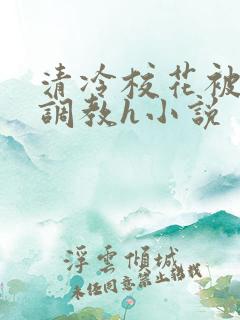 清冷校花被
調教h小說
浮雲傾城
未经同意禁止转载